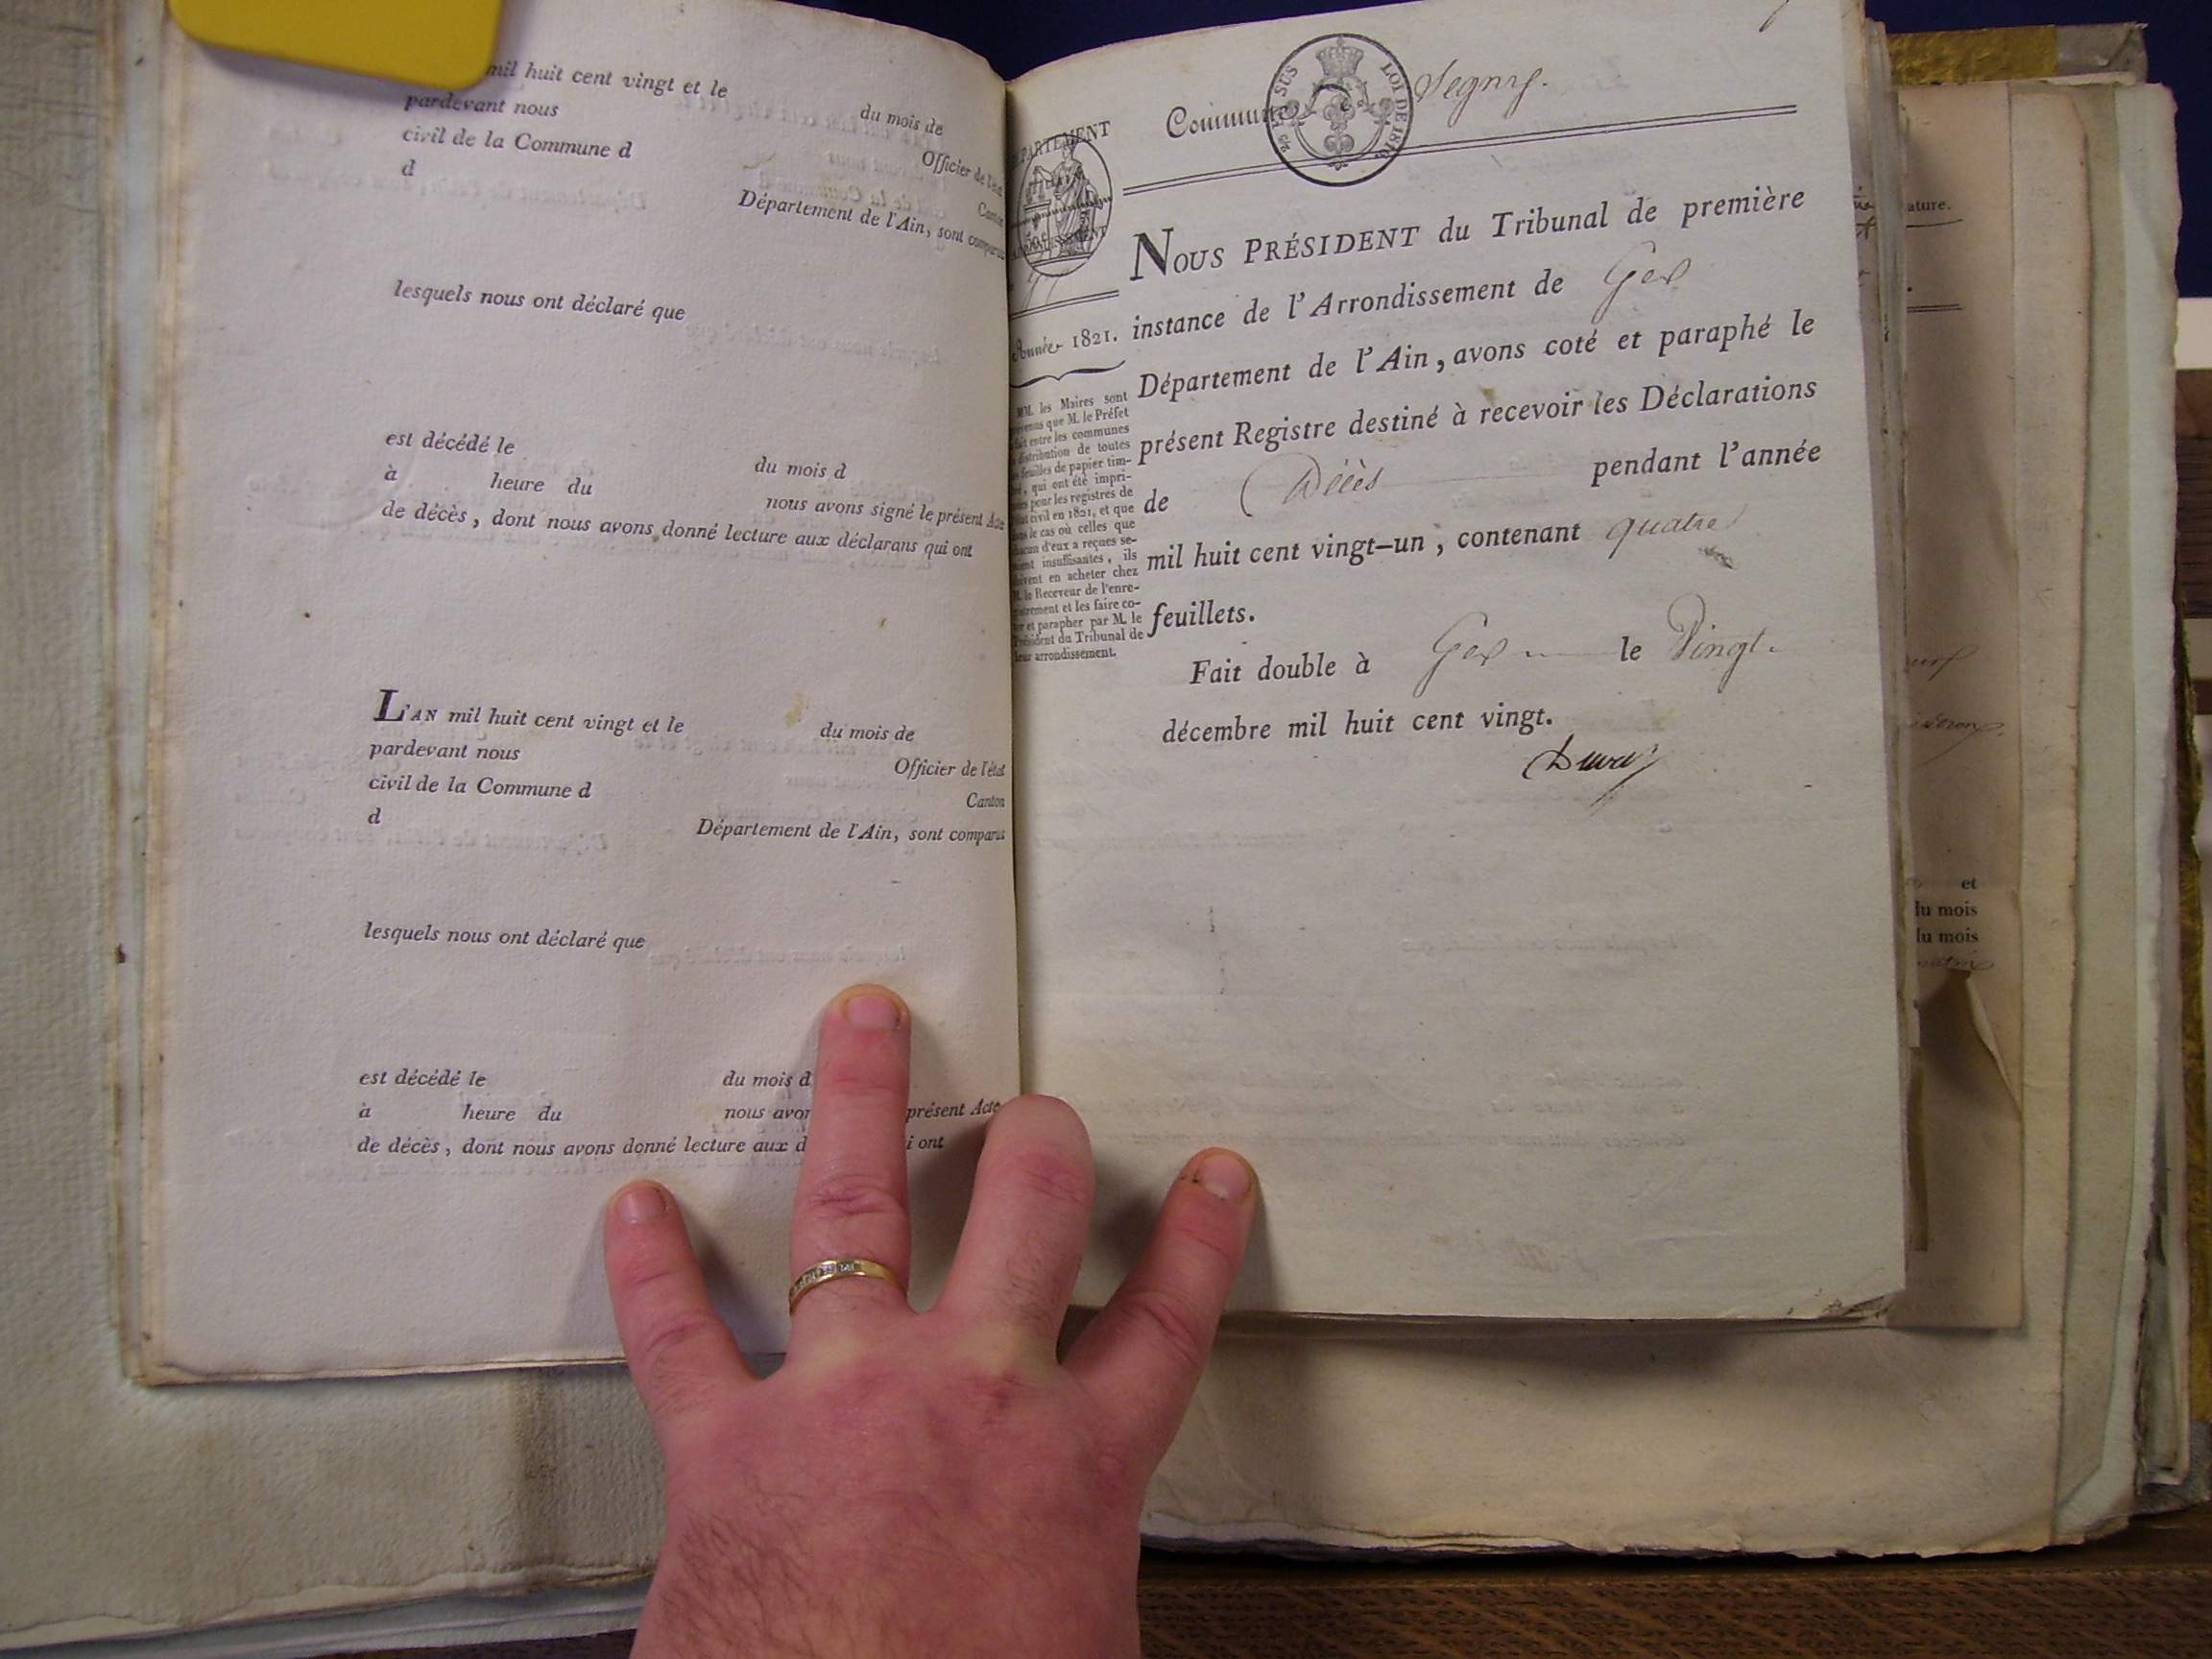 mil huit cent vingt et le du mois de
pardevant nous Officier de l'état
civil de la Commune d Canton
d Département de l'Ain, sont comparus
lesquels nous ont déclaré que
est décédé le du mois d
à heure du nous avons signé le présent Acte
de décès, dont nous avons donné lecture aux déclarans qui ont
L'AN mil huit cent vingt et le du mois de
pardevant nous Officier de l'état
civil de la Commune d Canton
d Département de l'Ain, sont comparus
lesquels nous ont déclaré que
est décédé le du mois d
à heure du nous avon présent Acte
de décès, dont nous avons donné lecture aux d i ont
Commune Segny.
LOI DE 1816
DÉPARTEMENT
Année 1821.
MM. les Maires sont
prévenus que M. le Préfet
a fait entre les communes
la distribution de toutes
les feuilles de papier tim-
bré, qui ont été impri-
mées pour les registres de
l'état civil en 1821, et que
dans le cas où celles que
chacun d'eux a reçues se-
roient insuffisantes, ils
doivent en acheter chez
M. le Receveur de l'enre-
gistrement et les faire co-
ter et parapher par M. le
Président du Tribunal de
leur arrondissement.
NOUS PRÉSIDENT du Tribunal de première
instance de l'Arrondissement de Gex
Département de l'Ain, avons coté et paraphé le
présent Registre destiné à recevoir les Déclarations
de Décès pendant l'année
mil huit cent vingt-un, contenant quatre
feuillets.
Fait double à Gex le Vingt.
décembre mil huit cent vingt.
ature.
et
du mois
du mois